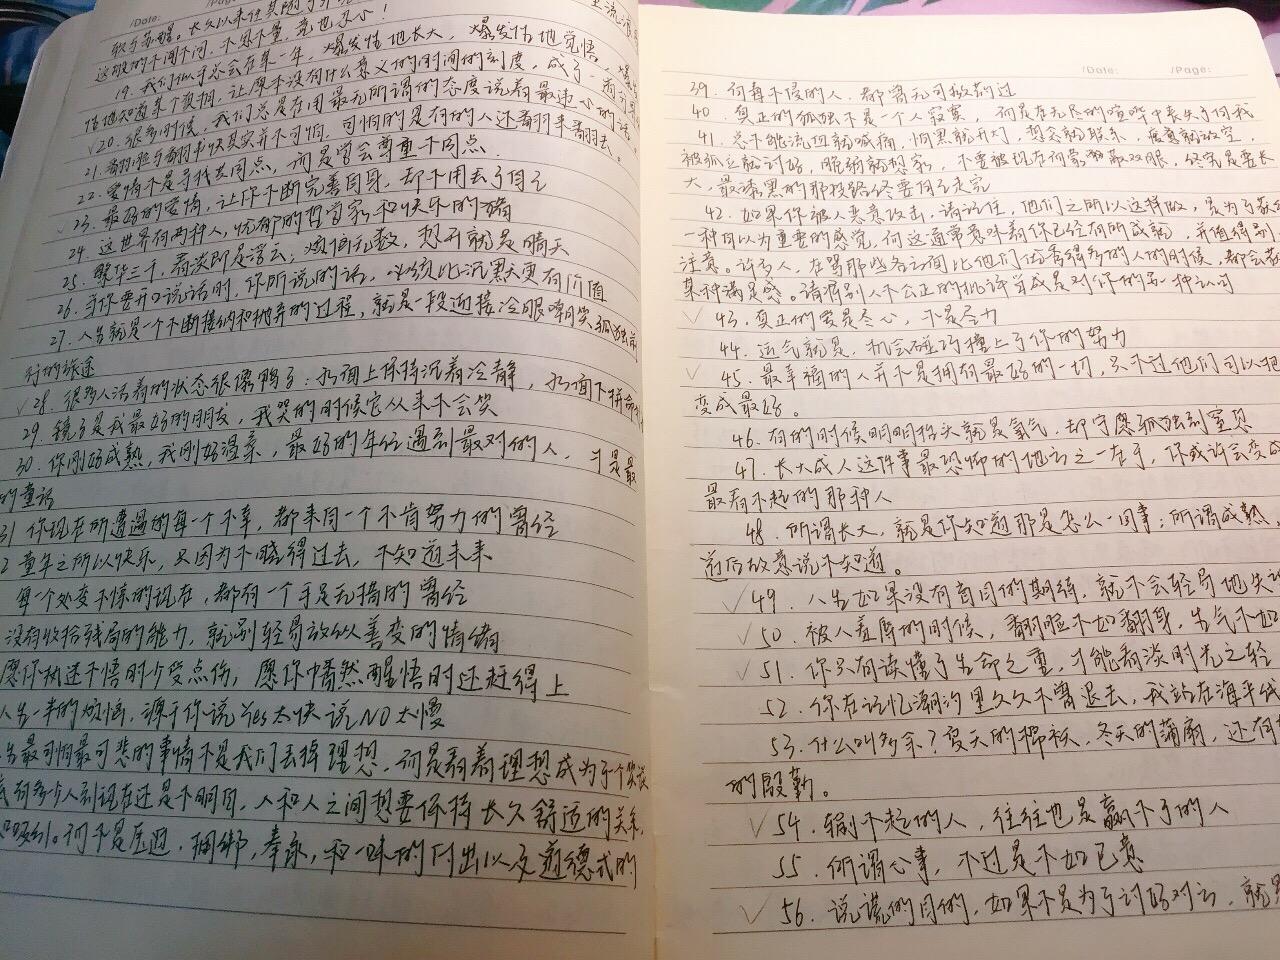 /Date:
这般的不闻不问,不思不量,竟也不小!
19. 我们似乎总会在某一年,爆发性地长大,爆发性地觉悟,爆发
性地知道某个真相,让原本没有什么意义的时间的刻度,成了一道分界
✓20. 很多时候,我们总是在用最无所谓的态度说着最违心的话
21. 翻脸与翻书快其实并不可怕,可怕的是有的人还翻来翻去。
22. 爱情不是寻找共同点,而是学会尊重不同点
✓23. 最好的爱情,让你不断完善自身,却不用丢了自己
24. 这世界有两种人,忧郁的哲学家和快乐的猪
25. 繁华三千,看淡即是浮云,烦恼无数,想开就是晴天
26. 当你要开口说话时,你所说的话,必须比沉默更有价值
27. 人生就是一个不断接纳和抛弃的过程,就是一段迎接冷眼嘲笑孤独前
行的旅途
✓28. 很多人活着的状态很像鸭子:水面上保持沉着冷静,水面下拼命
29. 镜子是我最好的朋友,我哭的时候它从来不会笑
30. 你刚好成熟,我刚好温柔,最好的年纪遇到最对的人,才是最
的童话
31 你现在所遭遇的每一个不幸,都来自一个不肯努力的曾经
2 童年之所以快乐,只因为不晓得过去,不知道未来
每一个处变不惊的现在,都有一个手足无措的曾经
没有收拾残局的能力,就别轻易放纵善变的情绪
愿你执迷不悟时少受点伤,愿你幡然醒悟时还赶得上
人生一半的烦恼,源于你说Yes太快说NO太慢
生最可怕最可悲的事情不是我们丢掉理想,而是看着理想成为了个笑话
有多少人到现在还是不明白,人和人之间想要保持长久舒适的关系,
吸引。而不是压迫,捆绑,奉承,和一味的付出以及道德式的
/Date: /Page:
39. 何毒不侵的人,都曾无可救药过
40. 真正的孤独不是一个人寂寞,而是在无尽的喧哗中丧失了自我
41. 总不能流血就喊痛,怕黑就开灯,想念就联系,疲惫就放空,
被孤立就讨好,脆弱就想家,不要被现在而蒙蔽双眼,终究是要长
大,最漆黑的那段路终要自己走完
42. 如果你被人恶意攻击,请记住,他们之所以这样做,是为了获得
一种自以为重要的感觉,而这通常意味着你已经有所成就,并值得别人
注意。许多人,在骂那些各方面比他们优秀得多的人的时候,都会获
某种满足感。请谨别人不公正的批评当成是对你的另一种认可
✓43. 真正的爱是尽心,不是尽力
44. 运气就是,机会碰巧撞上了你的努力
✓45. 最幸福的人并不是拥有最好的一切,只不过他们可以把
变成最好。
46. 有的时候明明抬头就是氧气,却宁愿孤独到窒息
47. 长大成人这件事最恐怖的地方之一在于,你或许会变成
最看不起的那种人
48. 所谓长大,就是你知道那是怎么一回事;所谓成熟,
道后故意说不知道。
✓49. 人生如果没有盲目的期待,就不会轻易地失望
✓50. 被人羞辱的时候,翻脸不如翻身,生气不如
✓51. 你只有读懂了生命之重,才能看淡时光之轻
52. 你在记忆潮汐里久久不曾退去,我站在海平线
53. 什么叫多余?夏天的棉袄,冬天的蒲扇,还有
的殷勤。
✓54. 输不起的人,往往也是赢不了的人
55. 所谓心事,不过是不如己意
✓56. 说谎的目的,如果不是为了讨好对方,就是